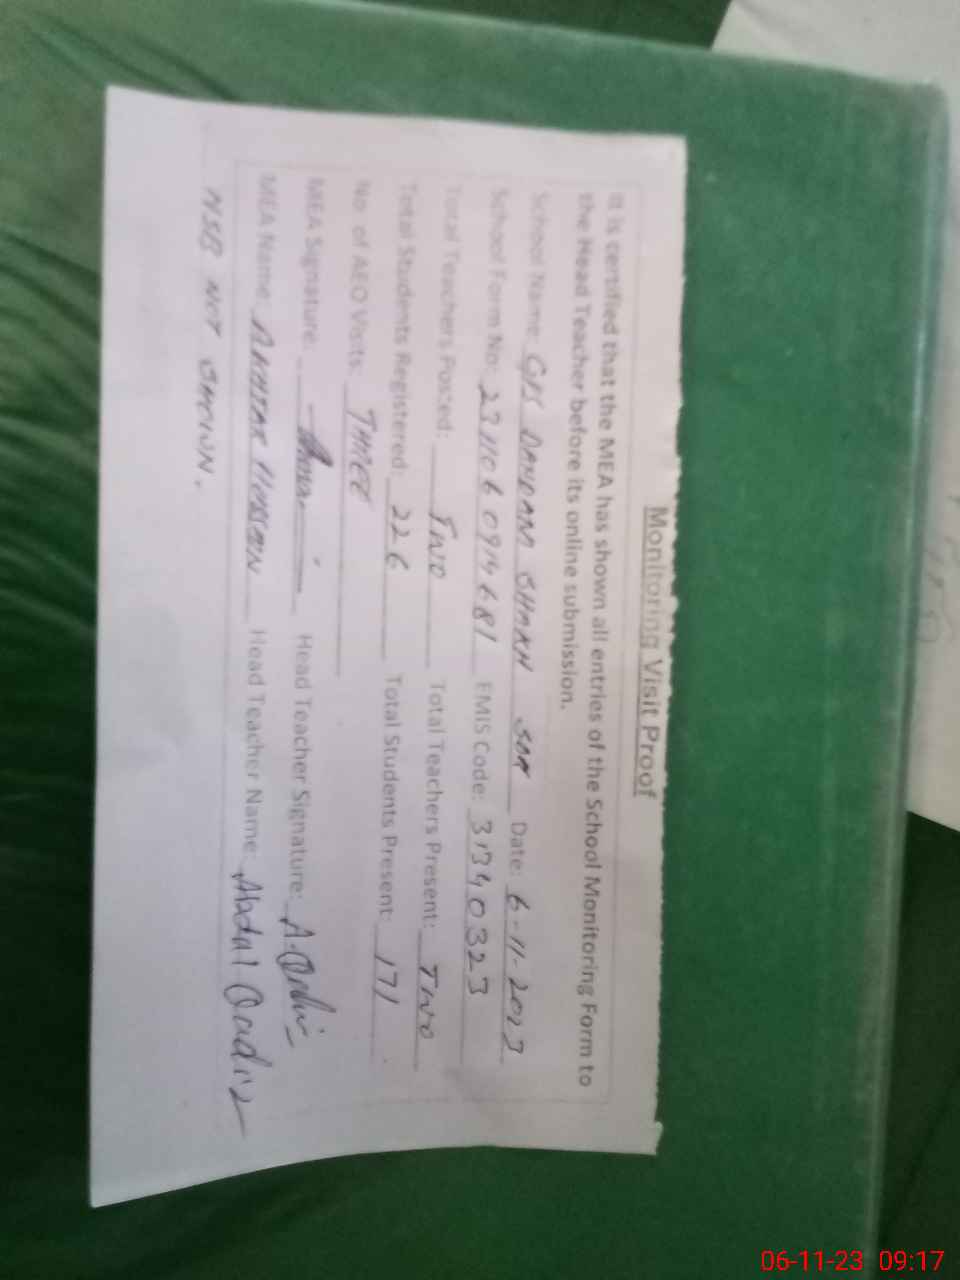 Monitoring Visit Proof
It is certified that the MEA has shown all entries of the School Monitoring Form to
the Head Teacher before its online submission.
School Name: GPS DANDAM SHAKH Date: 6-11-2023
School Form No: EMIS Code: 31340323
Total Teachers Posted: TWO Total Teachers Present: TWO
Total Students Registered: 226 Total Students Present: 171
No. of AEO Visits: THREE
MEA Signature: Head Teacher Signature:
MEA Name: AKHTAR HUSSAIN Head Teacher Name: Abdul Qadir
NSB NOT SHOWN.
06-11-23 09:17